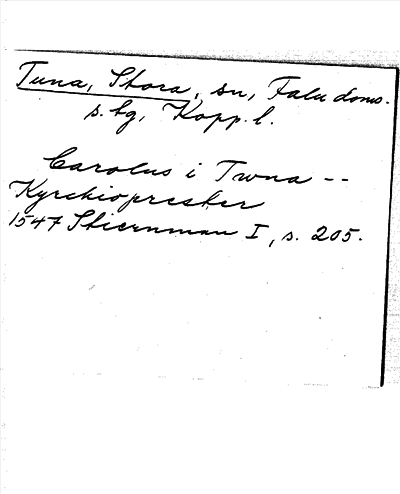 Tuna, Stora, sn, Falu doms.
s. tg, Kopp. l.
Carolus i Twna --
Kyrckioprester
1547 Stiernman I, s. 205.